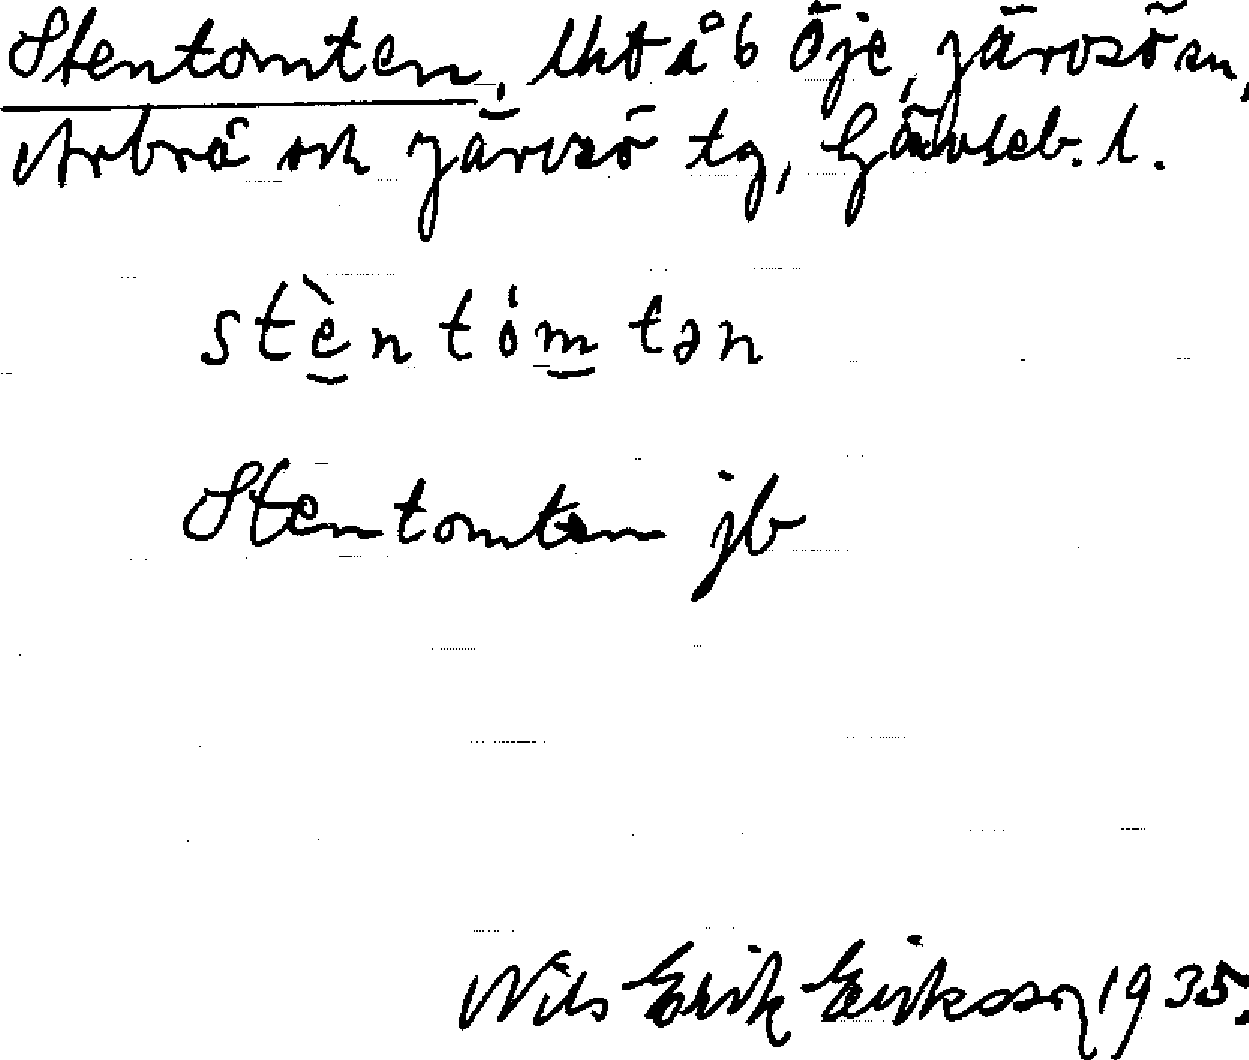 Stentomten, lht å 6 Öje, Järvsö sn,
Arbrå och Järvsö tg, Gävleb. l.
stèntómtən
Stentomten jb
Nils Erik Eriksson 1935.